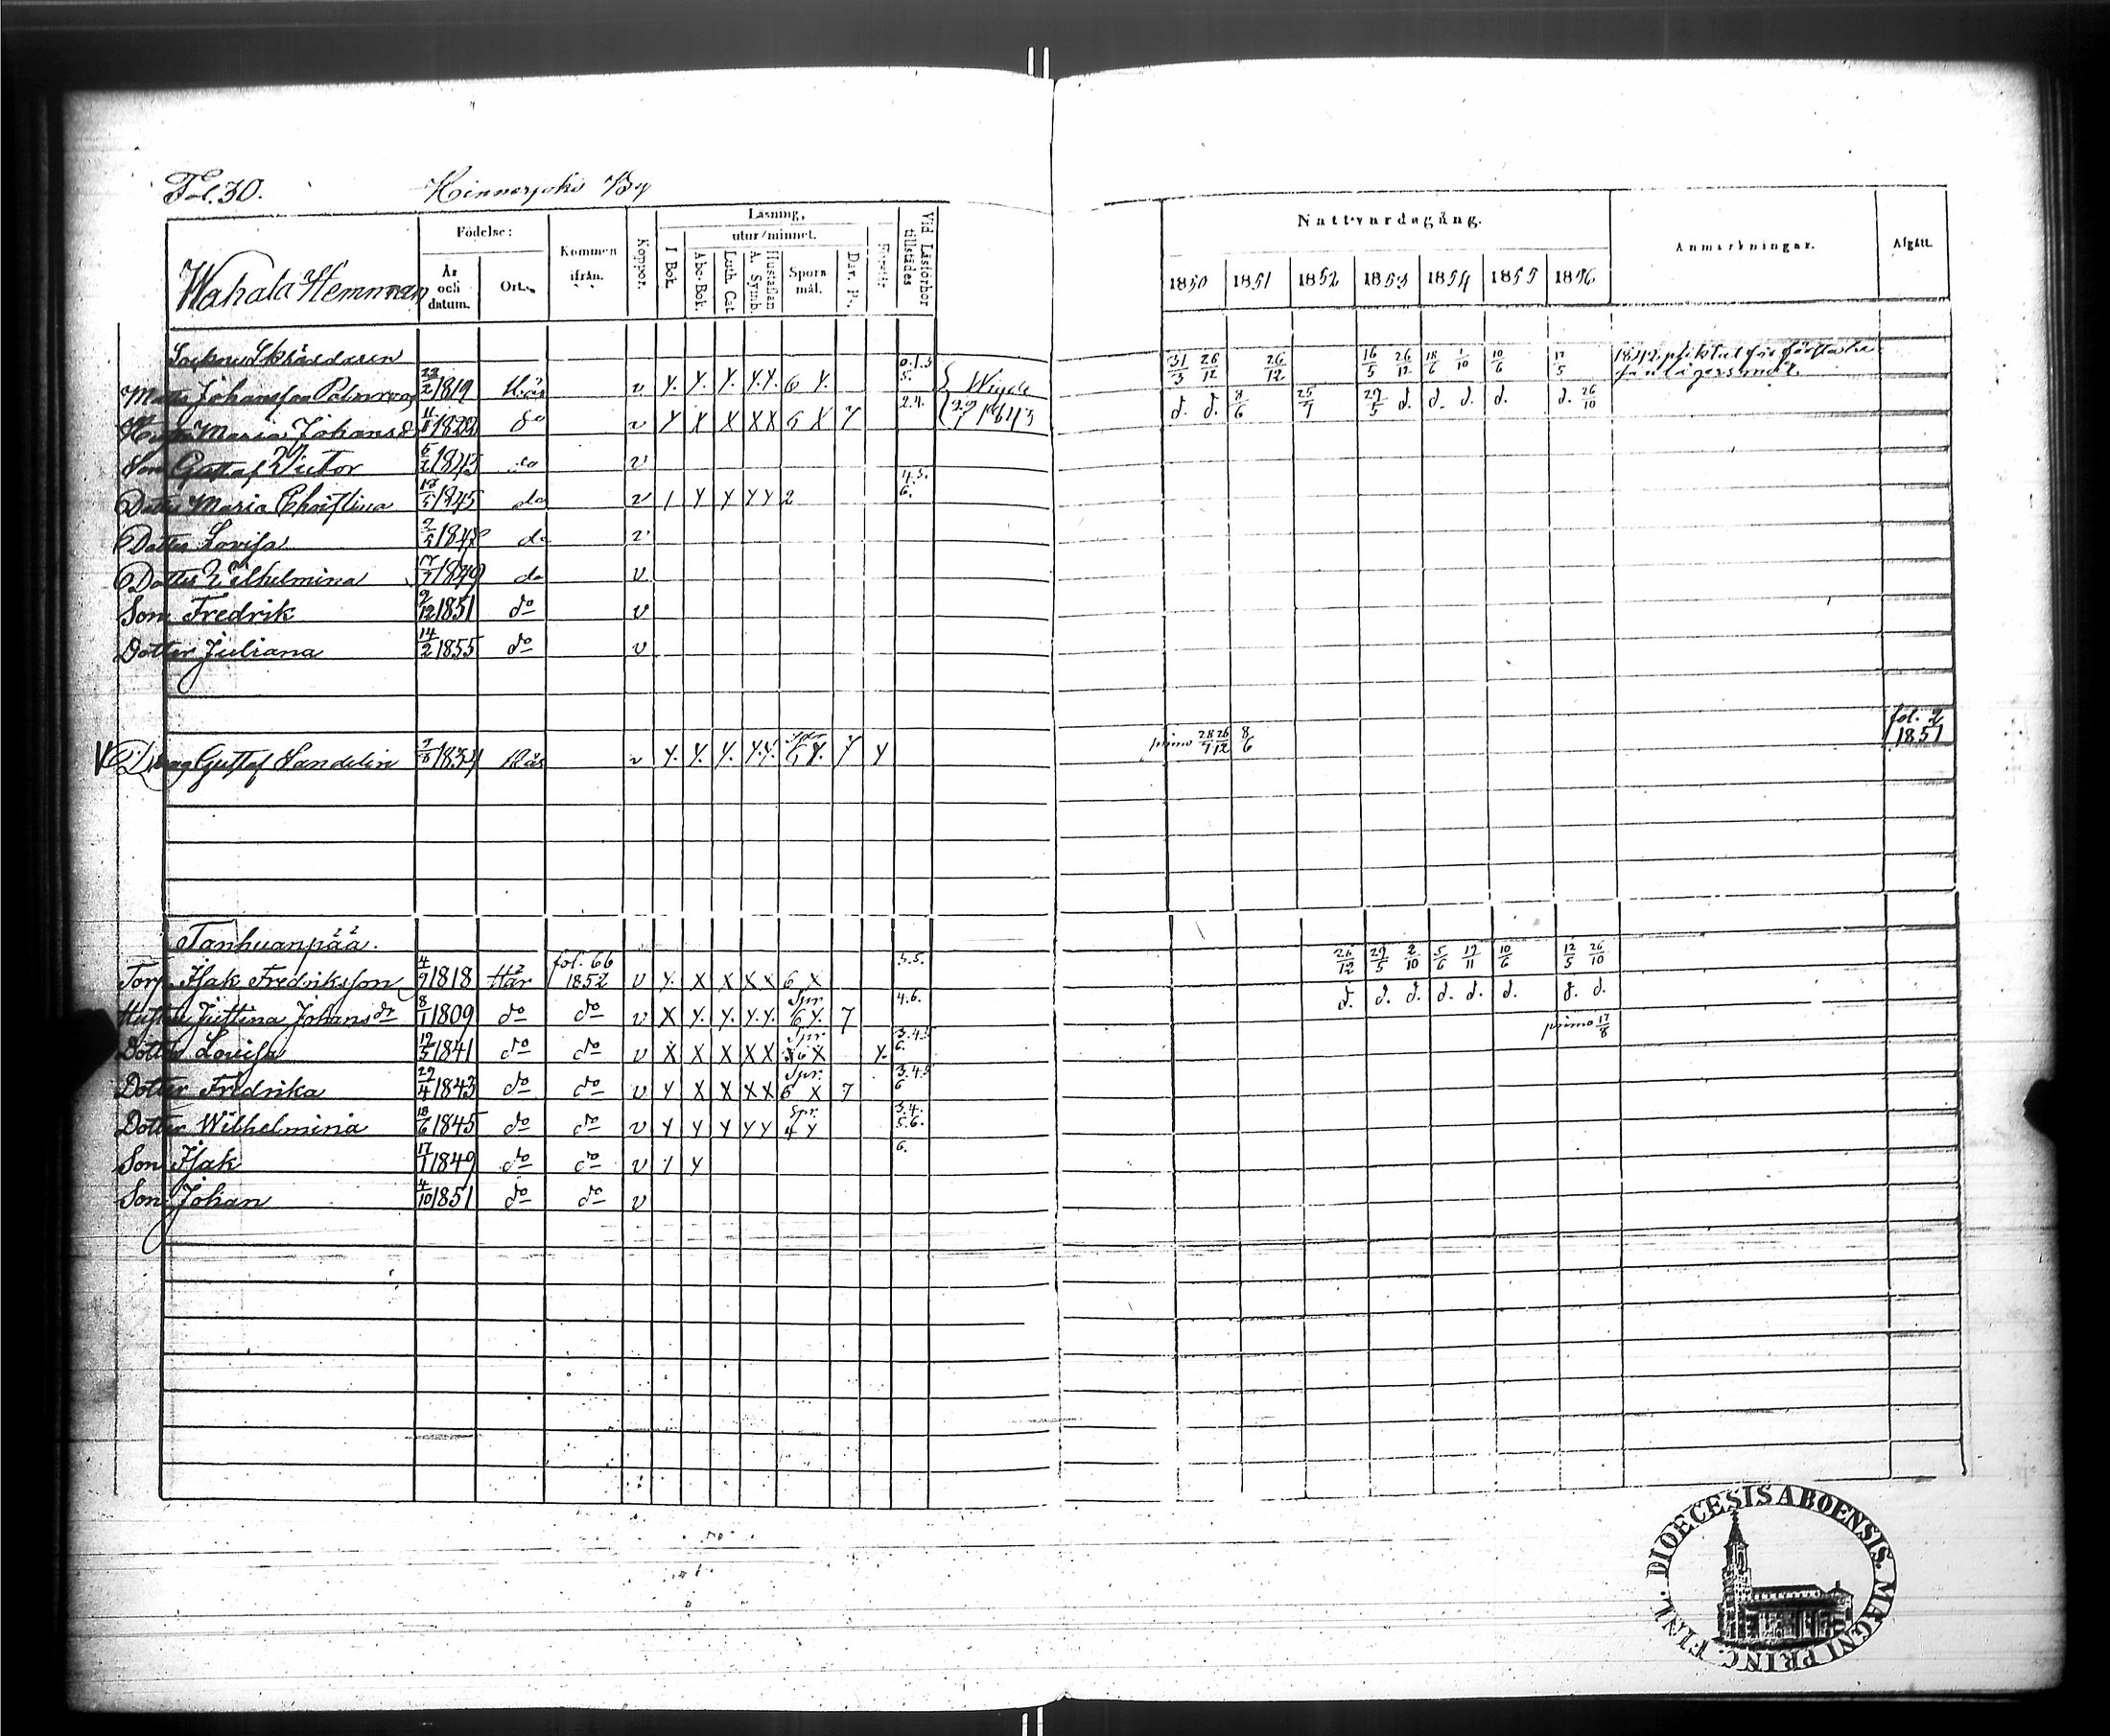 Fol. 30. Hinnerjoki By
Wahala Hemman
Födelse:
År och datum.
Ort.
Kommen ifrån.
Koppor.
Läsning,
utur minnet.
I Bok.
Abc-Bok.
Luth. Cat.
Hustaflan A. Symb.
Spors mål.
Dav. Ps.
Vid Läsförhör tillstädes
Nattvardsgång.
1850 1851 1852 1853 1854 1855 1856
Anmärkningar.
Afgått.
Sockne Skräddaren 0.1.3 31/3 26/12 26/12 16/5 26/12 18/6 1/10 10/6 17/5
Matts Johansson 1819 Här v Y. Y. Y. Y.Y. 6 Y. 5. Wigde
Hustr. Maria Johansdr 1822 do v Y X X X X 6 X 7 2.4. 1843 d. d. 8/6 25/7 29/5 d. d. d. d. d. 26/10
Son Gustaf Victor 5/2 1843 do v
Dotter Maria Christina 1845 do v 1 Y Y Y Y 2 4.5. 6.
Dotter Lovisa do v
Dotter Wilhelmina 17/7 1849 do v
Son Fredrik 9/12 1851 do v
Dotter Juliana 14/2 1855 do v
fol. 2
V Dräng Gustaf Sandelin Här v Y. Y. Y. Y.Y. 6 Y. 7 Y primo 28/7 26/12 8/6 1851
Tanhuanpää.
Torp. Isak Fredriksson 4/9 1818 Här fol. 66 1852 v Y. X X X X 6 X 3.5. 26/12 29/5 2/10 5/6 19/11 10/6 12/5 26/10
Hustru Justina Johansdr 8/1 1809 do do v X Y. Y. Y.Y. Spr. 6 Y. 7 4.6. d. d. d. d. d. d. d. d.
Dotter Lovisa 19/5 1841 do do v X X X X X Spr. 6 X Y. 3.4.5 6. primo 17/8
Dotter Fredrika 29/4 1843 do do v Y X X X X Spr. 6 X 7 3.4.5 6
Dotter Wilhelmina 18/6 1845 do do v Y Y Y Y Y Spr. 4 Y 3.4. 5.6.
Son Isak 17/1 1849 do do v 1 Y 6.
Son Johan 4/10 1851 do do v
DIOECESIS ABOENSIS. MAGNI PRINC. FINL.